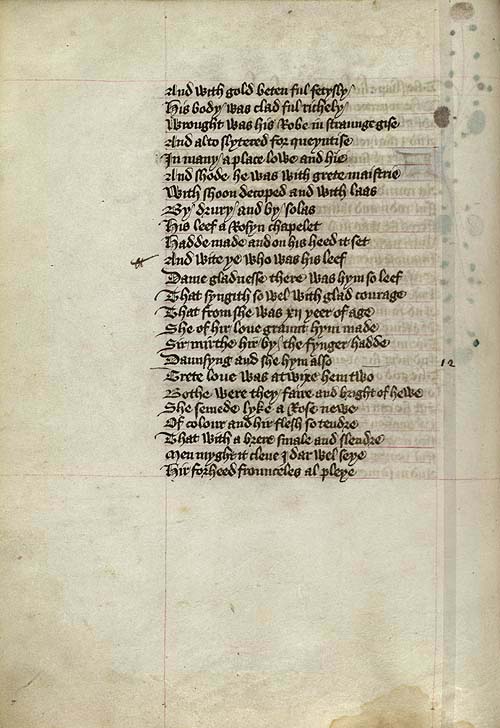 And with gold beten ful fetysly
His body was clad ful richely
Wrought was his Robe in straunge gise
And al to slytered for queyntise
In many a place lowe and hie
And shode he was with grete maistrie
With shoon decoped and with laas
By drury and by solas
His leef a Rosyn chapelet
Hadde made and on his heed it set
And wite ye who was his leef
Dame gladnesse there was hym so leef
That syngith so wel with glad courage
That from she was xii yeer of age
She of hir loue graunt hym made
Sir mirthe hir by the fynger hadde
Daunsyng and she hym also
Grete loue was atwixe hem two
Bothe were they faire and bright of hewe
She semede lyke a Rose newe
Of colour and hir flesh so tendre
That with a brere smale and slendre
Men myght it cleue I dar wel seye
Hir forheed frounceles al pleye
12